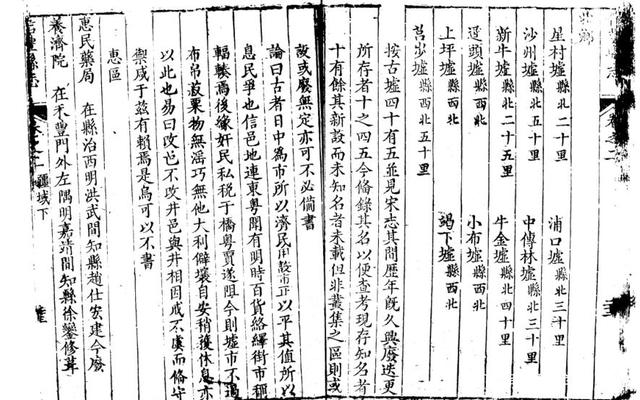 星村墟縣北二十里 浦口墟縣北三十里
沙州墟縣北五十里 中傳林墟縣北三十里
新牛墟縣北二十五里 牛金墟縣北四十里
逕頭墟縣西北 小布墟縣西北
上坪墟縣西北 下墟縣西北
墟縣西北五十里
按古墟四十有五並見宋志其間歷年旣久興廢迭更
所存者十之四五今備錄其名以便查考現存知名者
十有餘其新設而未知名者未載但非叢集之區則或
設或廢無定亦可不必備書
論曰古者日中為市所以濟民用設市正以平其值所以
息民爭也信邑地連東粵聞有明時百貨絡繹街市稱
輻輳焉後緣奸民私稅于橋粵賈遂阻今則墟市不過
布帛菽粟物無滛巧無他大利僻壤自安稍獲休息亦
以此也易曰改邑不改井邑與井相因戒不虞而脩守
禦咸于茲有賴焉是烏可以不書
惠區
惠民藥局 在縣治西明洪武間知縣趙仕安建今廢
養濟院 在禾豐門外左隅明嘉靖間知縣徐鑾修葺
信豐縣志 卷之二 疆域下